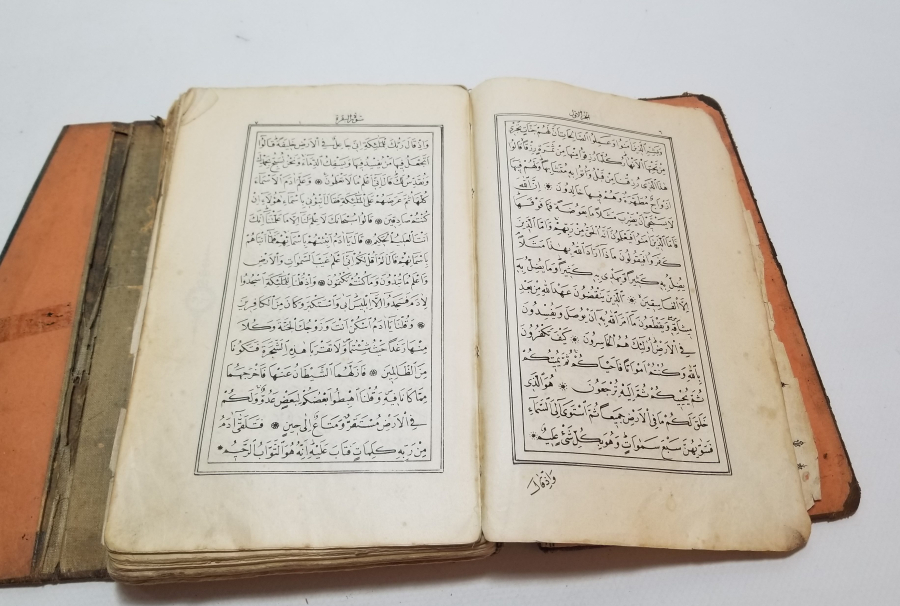 الجزء الاول
وَبَشِّرِ الَّذِينَ اٰمَنُوا وَعَمِلُوا الصَّالِحَاتِ اَنَّ لَهُمْ جَنَّاتٍ تَجْرِي
مِنْ تَحْتِهَا الْاَنْهَارُ كُلَّمَا رُزِقُوا مِنْهَا مِنْ ثَمَرَةٍ رِزْقًا قَالُوا
هٰذَا الَّذِي رُزِقْنَا مِنْ قَبْلُ وَاُتُوا بِهِ مُتَشَابِهًا وَلَهُمْ فِيهَا
اَزْوَاجٌ مُطَهَّرَةٌ وَهُمْ فِيهَا خَالِدُونَ ۞ اِنَّ اللّٰهَ
لَا يَسْتَحْيِي اَنْ يَضْرِبَ مَثَلًا مَا بَعُوضَةً فَمَا فَوْقَهَا
فَاَمَّا الَّذِينَ اٰمَنُوا فَيَعْلَمُونَ اَنَّهُ الْحَقُّ مِنْ رَبِّهِمْ وَاَمَّا الَّذِينَ
كَفَرُوا فَيَقُولُونَ مَاذَا اَرَادَ اللّٰهُ بِهٰذَا مَثَلًا
يُضِلُّ بِهِ كَثِيرًا وَيَهْدِي بِهِ كَثِيرًا وَمَا يُضِلُّ بِهِ
اِلَّا الْفَاسِقِينَ ۞ اَلَّذِينَ يَنْقُضُونَ عَهْدَ اللّٰهِ مِنْ بَعْدِ
مِيثَاقِهِ وَيَقْطَعُونَ مَا اَمَرَ اللّٰهُ بِهِ اَنْ يُوصَلَ وَيُفْسِدُونَ
فِي الْاَرْضِ اُولٰئِكَ هُمُ الْخَاسِرُونَ ۞ كَيْفَ تَكْفُرُونَ
بِاللّٰهِ وَكُنْتُمْ اَمْوَاتًا فَاَحْيَاكُمْ ثُمَّ يُمِيتُكُمْ
ثُمَّ يُحْيِيكُمْ ثُمَّ اِلَيْهِ تُرْجَعُونَ ۞ هُوَ الَّذِي
خَلَقَ لَكُمْ مَا فِي الْاَرْضِ جَمِيعًا ثُمَّ اسْتَوٰى اِلَى السَّمَاءِ
فَسَوّٰيهُنَّ سَبْعَ سَمٰوَاتٍ وَهُوَ بِكُلِّ شَيْءٍ عَلِيمٌ ۞
وَاِذْ قَالَ
سورة البقرة
وَاِذْ قَالَ رَبُّكَ لِلْمَلٰئِكَةِ اِنِّي جَاعِلٌ فِي الْاَرْضِ خَلِيفَةً قَالُوا
اَتَجْعَلُ فِيهَا مَنْ يُفْسِدُ فِيهَا وَيَسْفِكُ الدِّمَاءَ وَنَحْنُ نُسَبِّحُ بِحَمْدِكَ
وَنُقَدِّسُ لَكَ قَالَ اِنِّي اَعْلَمُ مَا لَا تَعْلَمُونَ ۞ وَعَلَّمَ اٰدَمَ الْاَسْمَاءَ
كُلَّهَا ثُمَّ عَرَضَهُمْ عَلَى الْمَلٰئِكَةِ فَقَالَ اَنْبِؤُنِي بِاَسْمَاءِ هٰؤُلَاءِ اِنْ
كُنْتُمْ صَادِقِينَ ۞ قَالُوا سُبْحَانَكَ لَا عِلْمَ لَنَا اِلَّا مَا عَلَّمْتَنَا اِنَّكَ
اَنْتَ الْعَلِيمُ الْحَكِيمُ ۞ قَالَ يَا اٰدَمُ اَنْبِئْهُمْ بِاَسْمَائِهِمْ فَلَمَّا اَنْبَاَهُمْ
بِاَسْمَائِهِمْ قَالَ اَلَمْ اَقُلْ لَكُمْ اِنِّي اَعْلَمُ غَيْبَ السَّمٰوَاتِ وَالْاَرْضِ
وَاَعْلَمُ مَا تُبْدُونَ وَمَا كُنْتُمْ تَكْتُمُونَ ۞ وَاِذْ قُلْنَا لِلْمَلٰئِكَةِ اسْجُدُوا
لِاٰدَمَ فَسَجَدُوا اِلَّا اِبْلِيسَ اَبٰى وَاسْتَكْبَرَ وَكَانَ مِنَ الْكَافِرِينَ
۞ وَقُلْنَا يَا اٰدَمُ اسْكُنْ اَنْتَ وَزَوْجُكَ الْجَنَّةَ وَكُلَا
مِنْهَا رَغَدًا حَيْثُ شِئْتُمَا وَلَا تَقْرَبَا هٰذِهِ الشَّجَرَةَ فَتَكُونَا
مِنَ الظَّالِمِينَ ۞ فَاَزَلَّهُمَا الشَّيْطَانُ عَنْهَا فَاَخْرَجَهُمَا
مِمَّا كَانَا فِيهِ وَقُلْنَا اهْبِطُوا بَعْضُكُمْ لِبَعْضٍ عَدُوٌّ وَلَكُمْ
فِي الْاَرْضِ مُسْتَقَرٌّ وَمَتَاعٌ اِلٰى حِينٍ ۞ فَتَلَقّٰى اٰدَمُ
مِنْ رَبِّهِ كَلِمَاتٍ فَتَابَ عَلَيْهِ اِنَّهُ هُوَ التَّوَّابُ الرَّحِيمُ ۞